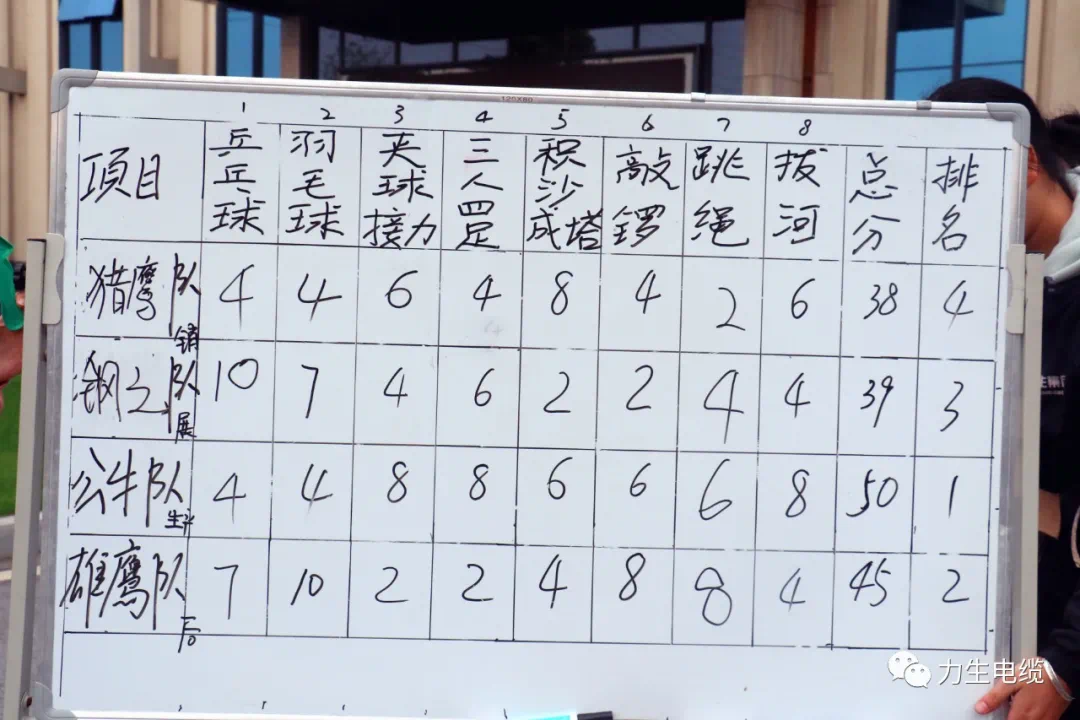 125X80
1 2 3 4 5 6 7 8
項目 乒乓球 羽毛球 夹球接力 三人四足 积沙成塔 敲锣 跳绳 拔河 总分 排名
猎鹰队 销 4 4 6 4 8 4 2 6 38 4
钢之队 展 10 7 4 6 2 2 4 4 39 3
公牛队 4 4 8 8 6 6 6 8 50 1
雄鹰队 后 7 10 2 2 4 8 8 4 45 2
力生电缆